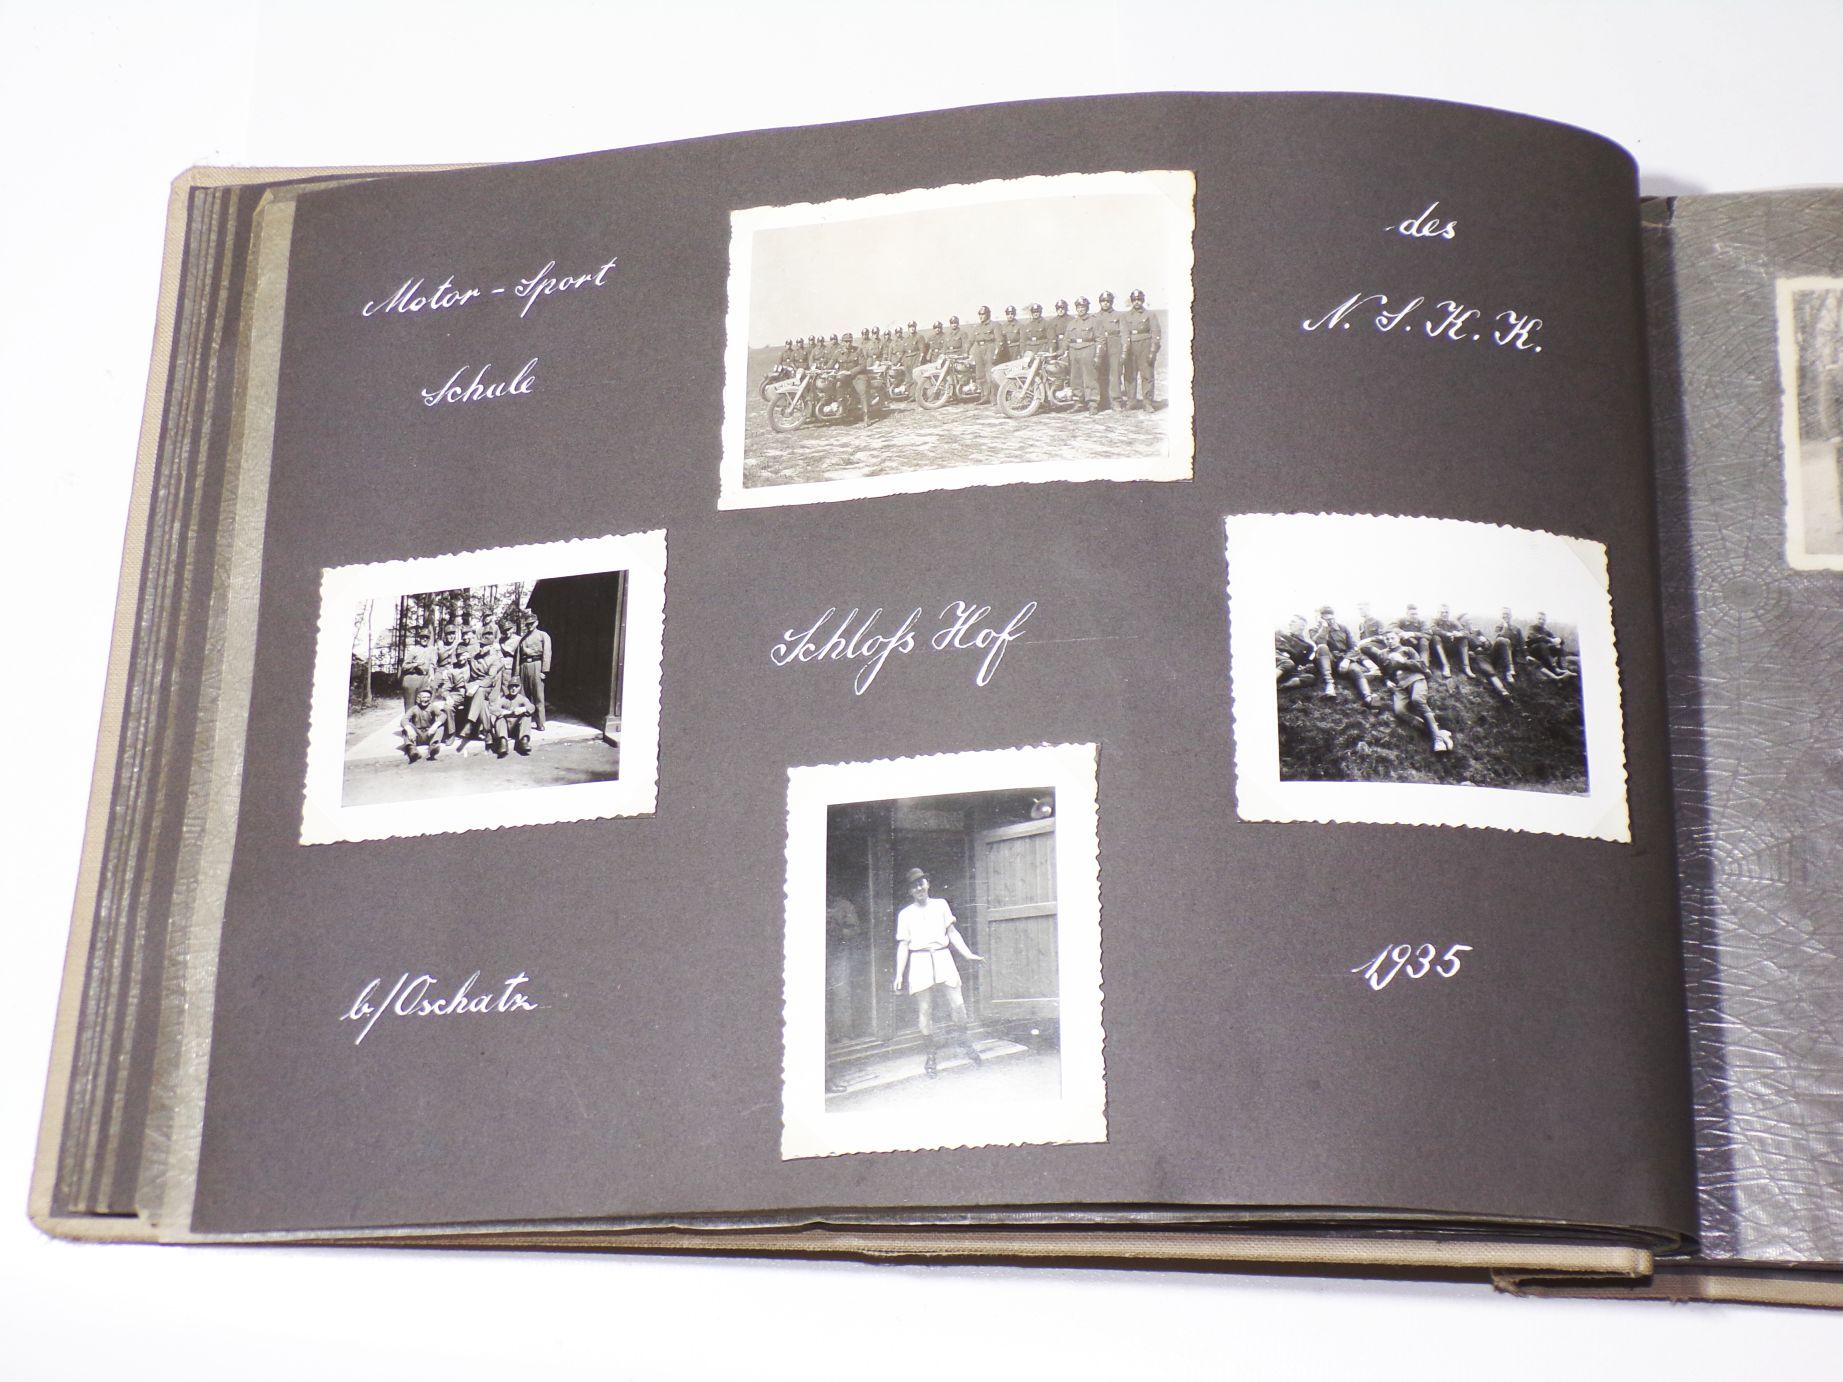 Motor-Sport
Schule
des
N. S. K. K.
Schloſs Hof
b/Oschatz
1935